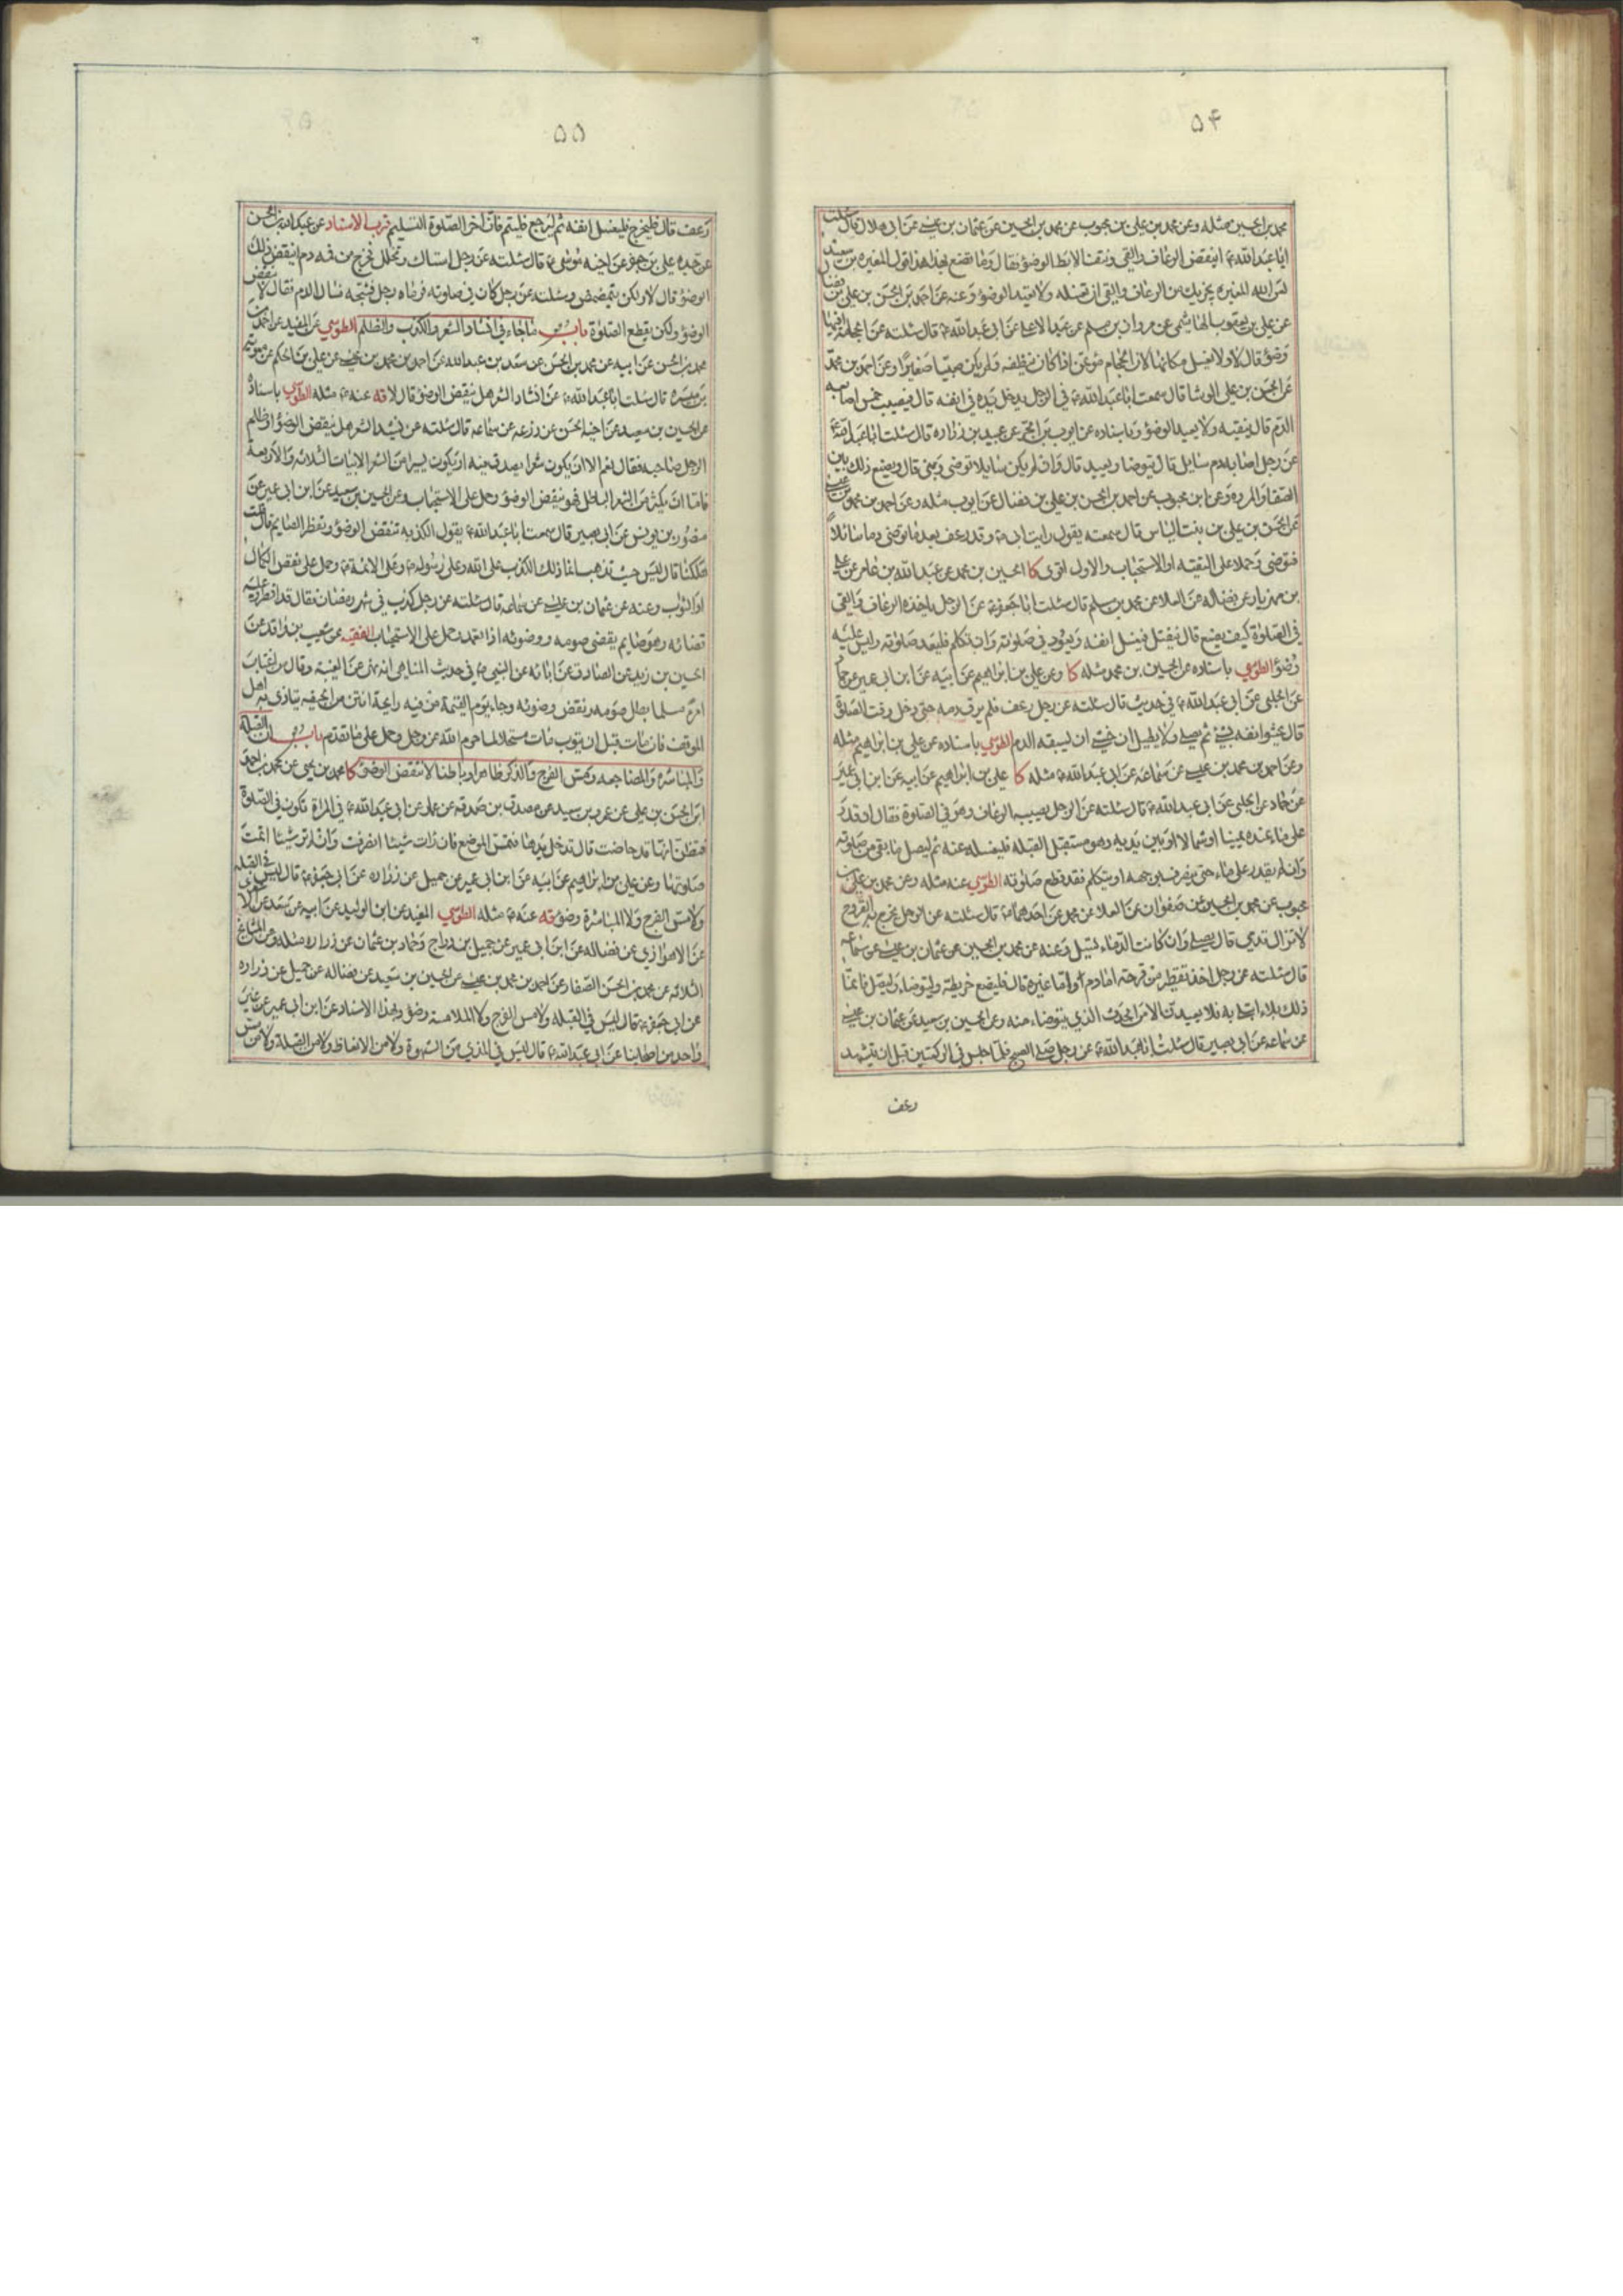 ۵۴
محمد بن الحسين مثله وعن محمد بن علي بن محبوب عن محمد بن الحسين عن عثمان بن عيسى عن ابي هلال قال سئلت
ابا عبدالله ع اينقض الرعاف والقي ونتف الابط الوضوء فقال وما تصنع بهذا هذا قول المغيره بن سعيد
لعن الله المغيره يجزيك من الرعاف والقي ان تغسله ولا تعيد الوضوء وعنه عن احمد بن الحسن بن علي بن فضال
عن علي بن يعقوب الهاشمي عن مروان بن مسلم عن عبد الاعلى عن ابي عبدالله ع قال سئلته عن الحجامة افيها
وضوء قال لا ولا يغسل مكانها لان الحجام مؤتمن اذا كان ينظفه ولم يكن صبيا صغيرا وعن احمد بن محمد
عن الحسن بن علي الوشا قال سمعت ابا عبدالله ع في الرجل يدخل يده في انفه قال فيصيب خمس اصابعه
الدم قال ينقيه ولا يعيد الوضوء وباسناده عن ايوب بن الحر عن عبيد بن زراره قال سئلت ابا عبدالله ع
عن رجل اصابه دم سايل قال يتوضا ويعيد قال وان لم يكن سايلا توضى وبنى قال ويصنع ذلك بين
الصفا والمروه وعن ابن محبوب عن احمد بن الحسن بن علي بن فضال عن ايوب مثله وعن احمد بن محمد بن عيسى
عن الحسن بن علي بن بنت الياس قال سمعته يقول رايت ابي ع وقد رعف بعد ما توضى دما سائلا
فتوضى وحملا على التقيه او الاستحباب والاول اقوى كا الحسين بن محمد عن عبد الله بن عامر عن علي
بن مهزيار عن فضاله عن العلا عن محمد بن مسلم قال سئلت ابا جعفر ع عن الرجل ياخذه الرعاف والقي
في الصلوة كيف يصنع قال ينفتل فيغسل انفه ويعود في صلوته وان تكلم فليعد صلوته وليس عليه
وضوء الطوسي باسناده عن الحسين بن محمد مثله كا وعن علي بن ابراهيم عن ابيه عن ابن ابي عمير عن حماد
عن الحلبي عن ابي عبدالله ع في حديث قال سئلته عن رجل رعف فلم يرق دمه حتى دخل وقت الصلوة
قال يحشو انفه بشيء ثم يصلي ولا يطيل ان خشي ان يسبقه الدم الطوسي باسناده عن علي بن ابراهيم مثله
وعن احمد بن محمد بن عيسى عن سماعه عن ابي عبدالله ع مثله كا علي بن ابراهيم عن ابيه عن ابن ابي عمير
عن حماد عن الحلبي عن ابي عبدالله ع قال سئلته عن الرجل يصيبه الرعاف وهو في الصلوة فقال ان قدر
على ماء عنده يمينا او شمالا او بين يديه وهو مستقبل القبله فليغسله عنه ثم ليصل ما بقي من صلوته
وان لم يقدر على ماء حتى ينصرف بوجهه او يتكلم فقد قطع صلوته الطوسي عنه مثله وعن محمد بن علي بن
محبوب عن محمد بن الحسين عن صفوان عن العلا عن محمد عن احدهما ع قال سئلته عن الرجل تخرج به القروح
لا تزال تدمي قال يصلي وان كانت الدماء تسيل وعنه عن محمد بن الحسين عن عثمان بن عيسى عن سماعه
قال سئلته عن رجل اخذه تقطير من قرحه اما دم واما غيره قال فليضع خريطة وليتوضا وليصل فانما
ذلك بلاء ابتلي به فلا يعيدن الا من الحدث الذي يتوضاء منه وعن الحسين بن سعيد عن عثمان بن عيسى
عن سماعه عن ابي بصير قال سئلت ابا عبدالله ع عن رجل صلى الصبح فلما جلس في الركعتين قبل ان يتشهد
رعف
۵۵
رعف قال فليخرج فليغسل انفه ثم ليرجع فليتم فان اخر الصلوة التسليم قرب الاسناد عن عبدالله بن الحسن
عن جده علي بن جعفر عن اخيه موسى ع قال سئلته عن رجل استاك او تخلل فخرج من فمه دم اينقض ذلك
الوضوء قال لا ولكن يتمضمض وسئلته عن رجل كان في صلوته فرماه رجل فشجه فسال الدم فقال لا ينقض
الوضوء ولكن يقطع الصلوة باب ما جاء في انشاد الشعر والكذب والظلم الطوسي عن المفيد عن احمد بن
محمد بن الحسن عن ابيه عن محمد بن الحسن عن سعد بن عبدالله عن احمد بن محمد بن عيسى عن علي بن الحكم عن معوية
بن ميسره قال سئلت ابا عبدالله ع عن انشاد الشعر هل ينقض الوضوء قال لا قه عنه ع مثله الطوسي باسناده
عن الحسين بن سعيد عن اخيه الحسن عن زرعه عن سماعه قال سئلته عن نشيد الشعر هل ينقض الوضوء او ظلم
الرجل صاحبه فقال نعم الا ان يكون شعرا يصدق فيه او يكون يسيرا من الشعر الابيات الثلاثه والاربعة
فاما ان يكثر من الشعر الباطل فهو ينقض الوضوء وحمل على الاستحباب وعن الحسين بن سعيد عن ابن ابي عمير عن
منصور بن يونس عن ابي بصير قال سمعت ابا عبدالله ع يقول الكذبه تنقض الوضوء وتفطر الصايم قال قلت
هلكنا قال ليس حيث تذهب انما ذلك الكذب على الله وعلى رسوله ص وعلى الائمة ع وحمل على نقض الكمال
او الثواب وعنه عن عثمان بن عيسى عن سماعه قال سئلته عن رجل كذب في شهر رمضان فقال قد افطر وعليه
قضائه وهو صايم يقضي صومه ووضوئه اذا تعمد وحمل على الاستحباب الفقيه عن شعيب بن واقد عن
الحسين بن زيد عن الصادق عن ابائه عن النبي ص في حديث المناهي انه نهى عن الغيبة وقال من اغتاب
امرء مسلما بطل صومه ونقض وضوئه وجاء يوم القيمة من فيه رايحة انتن من الجيفه يتاذى به اهل
الموقف فان مات قبل ان يتوب مات مستحلا لما حرم الله عز وجل وحمل على ما تقدم باب ان القبلة
والمباشره والمضاجعه ومس الفرج والذكر ظاهرا وباطنا لا ينقض الوضوء كا محمد بن يحيى عن محمد بن احمد عن
احمد بن الحسن بن علي عن عمرو بن سعيد عن مصدق بن صدقه عن عمار عن ابي عبدالله ع في المراة تكون في الصلوة
فتظن انها قد حاضت قال تدخل يدها فتمس الموضع فان رات شيئا انصرفت وان لم تر شيئا اتمت
صلوتها وعن علي بن ابراهيم عن ابيه عن ابن ابي عمير عن جميل عن زراره عن ابي جعفر ع قال ليس في القبله
ولا مس الفرج ولا المباشرة وضوء قه عنه ع مثله الطوسي المفيد عن ابن الوليد عن ابيه عن سعد
عن الاهوازي عن فضاله عن ابن ابي عمير عن جميل بن دراج وحماد بن عثمان عن زراره مثله وعن المشايخ
الثلاثه عن محمد بن الحسن الصفار عن احمد بن محمد بن عيسى عن الحسين بن سعيد عن فضاله عن جميل عن زراره
عن ابي جعفر ع قال ليس في القبله ولا مس الفرج ولا الملامسة وضوء وبهذا الاسناد عن ابن ابي عمير عن غير
واحد من اصحابنا عن ابي عبدالله ع قال ليس في المذي من الشهوة ولا من الانعاظ ولا من القبلة ولا من مس